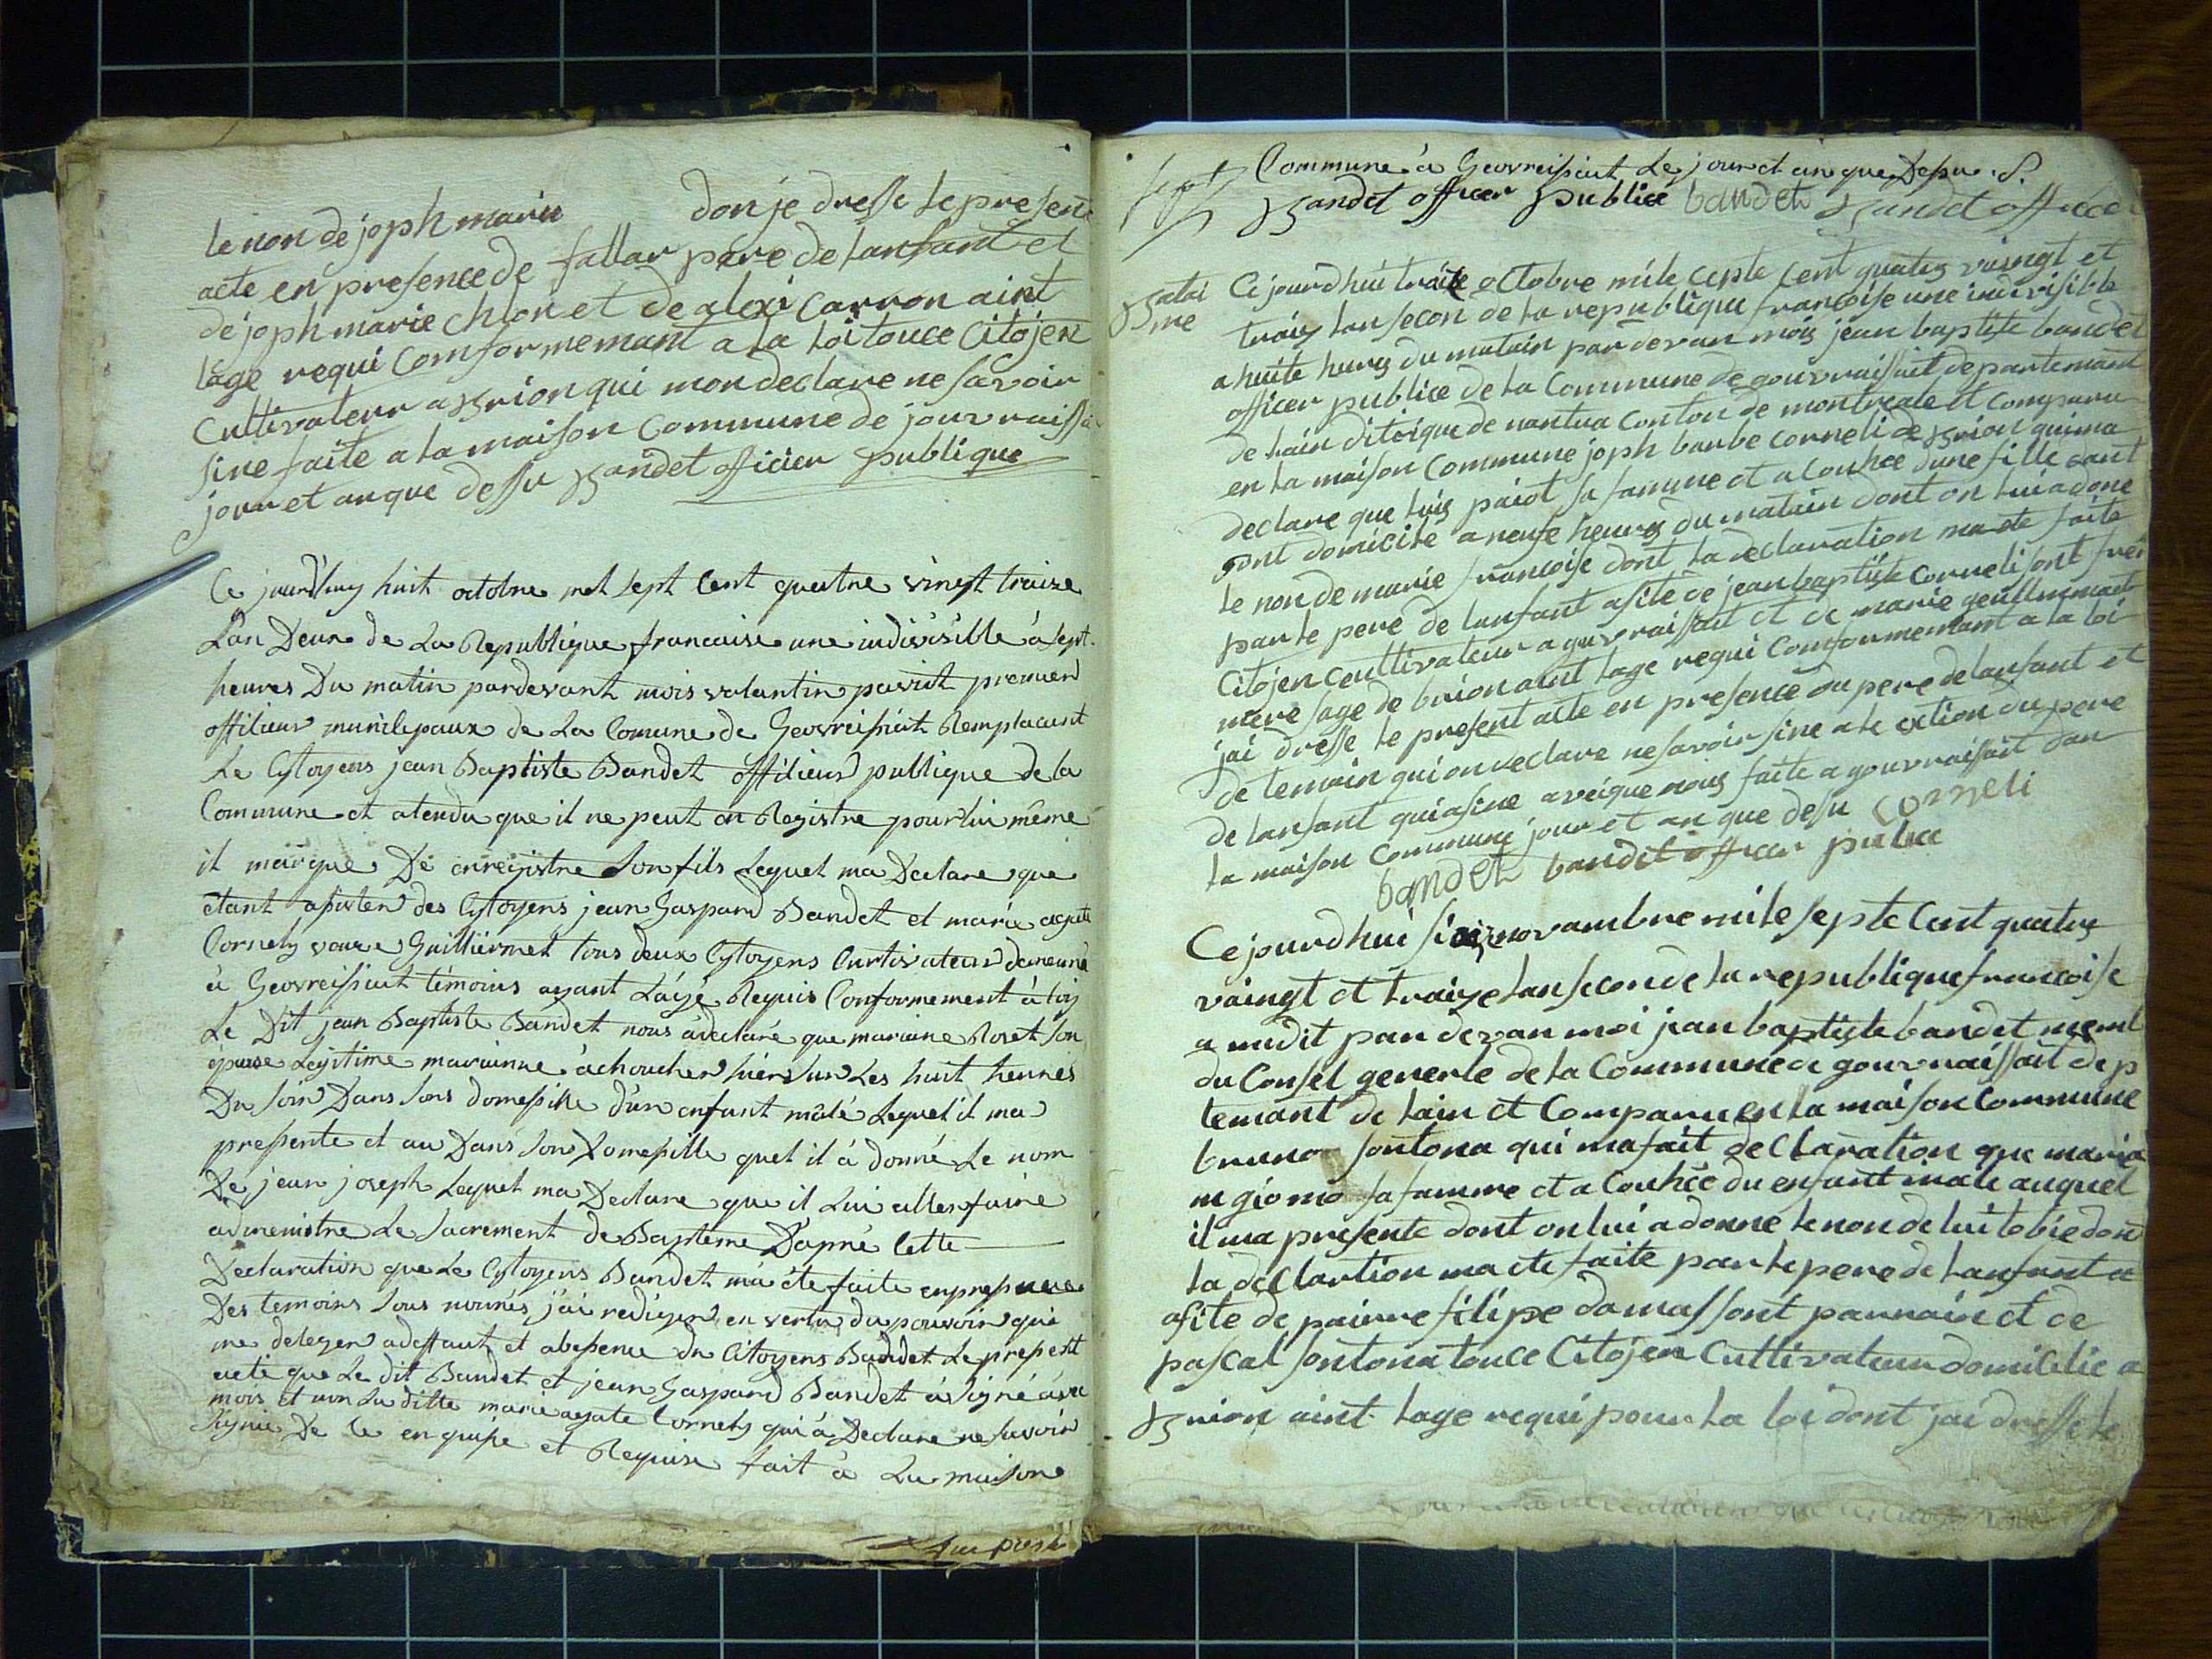 le non de joph marie donje dresse le presen
acte en presence de fallar pere de lanfant et
de joph marie chlon et de alexi carron aint
lage requi comformemant a la loi touce Citojen
Cultivateur a brion qui mon declare ne savoir
sine faite a la maison commune de jouvraissia
jour et an que dessu bandet officier publique
Ce jourd'huy huit octobre mil sept cent quatre vingt traize
L'an Deux de La Republique francaise une indivisible à sept
heures Du matin pardevant mois valantin paviot premier
officiers municipaux de La Comune de Geovreissiat Remplacant
Le Cytoyens jean Baptiste Bandet officiers publique de la
Commune et atendu que il ne peut en Registre pour lui même
it marque De enregistre Son fils Lequel ma Declare que
étant assister des Cytoyens jean Gaspard Bandet et marie agate
Cornely Guilliermet tous deux Cytoyens Curtivateur demeurne
à Geovreissiat témoins ayant L'age Requis Conformement à loy
Le Dit jean Baptiste Bandet nous a declaré que mariane Roset Son
épouse Legitime marianne achoucher hiers sur Les huit heures
Du Soir Dans Sons domesille d'un enfant mâlé Lequel il ma
pressente et au Dans Sons Domesille quel il à donné Le nom
De jean joseph Lequel ma Declare que il Lui alles faire
administre Le Sacrement de Bapteme D'apré Cette
Declaration que Le Cytoyens Bandet m'a éte faite en pressence
Des temoins Sous només j'ai rediger en vertu du pouvoir qui
me deleger adeffaut et abesence du Citoyens Bandet Le present
acte que Le dit Bandet et jean Gaspard Bandet à Signé avec
mois et non La ditte marie agate Cornely qui à Declare ne savoir
Signie De Ce enquise et Requise fait à La maison
Commune à Geovreissiat Le jour et an que Dessu
bandet officer publice bandet bandet officer
Ce jourdhui traize octobre mile cepte cent quatres vaingt et
traiz lan secon de la republique francoise une indivisible
a huite heures du matain par devan mois jean baptiste bandet
officer publice de la Commune de gouvraissiat departemant
de lain ditrique de nantua conton de montreale et comparu
en la maison Commune joph barbe corneli de brion qui ma
declare que luis paiot sa famme et a Couhee dune fille dant
sont domicile a neufe heures du matain dont on lui a done
le non de marie francoise dont la declaration ma ete faite
par le pere de lanfant asite de jean baptiste corneli sont frer
Citojen ceultivateur a gouvraissiat et de marie geulliermait
mere sage de brion aint lage requi Comformemant a la loi
jai dresse le present acte en presence du pere de lanfant et
de temoin qui on declare ne savoir sine a le extion du pere
de lanfant qui a sine aveque nous faite a gouvraissait dan
la maison Commune jour et an que dessu corneli
bandet bandet officer publice
Ce jourdhui siz novambre mile septe Cent quatre
vaingt et traize lan secon de la republique francoise
a midit par devan moi jean baptiste bandet meml
du Consel generle de la Commune de gouvraissait dep
temant de lain et Comparu en la maison Commune
bruno sontona qui ma fait declaration que maria
sa famme et a Couhee du enfant male auquel
il ma presente dont on lui a donne le non de dont
la declartion ma ete faite par le pere de lanfant et
asite de pairre filipe damassont parrain et de
pascal sontona touce Citojen Cultivateur domicilie a
brion aint lage requi pour la loi dont jai dresse le